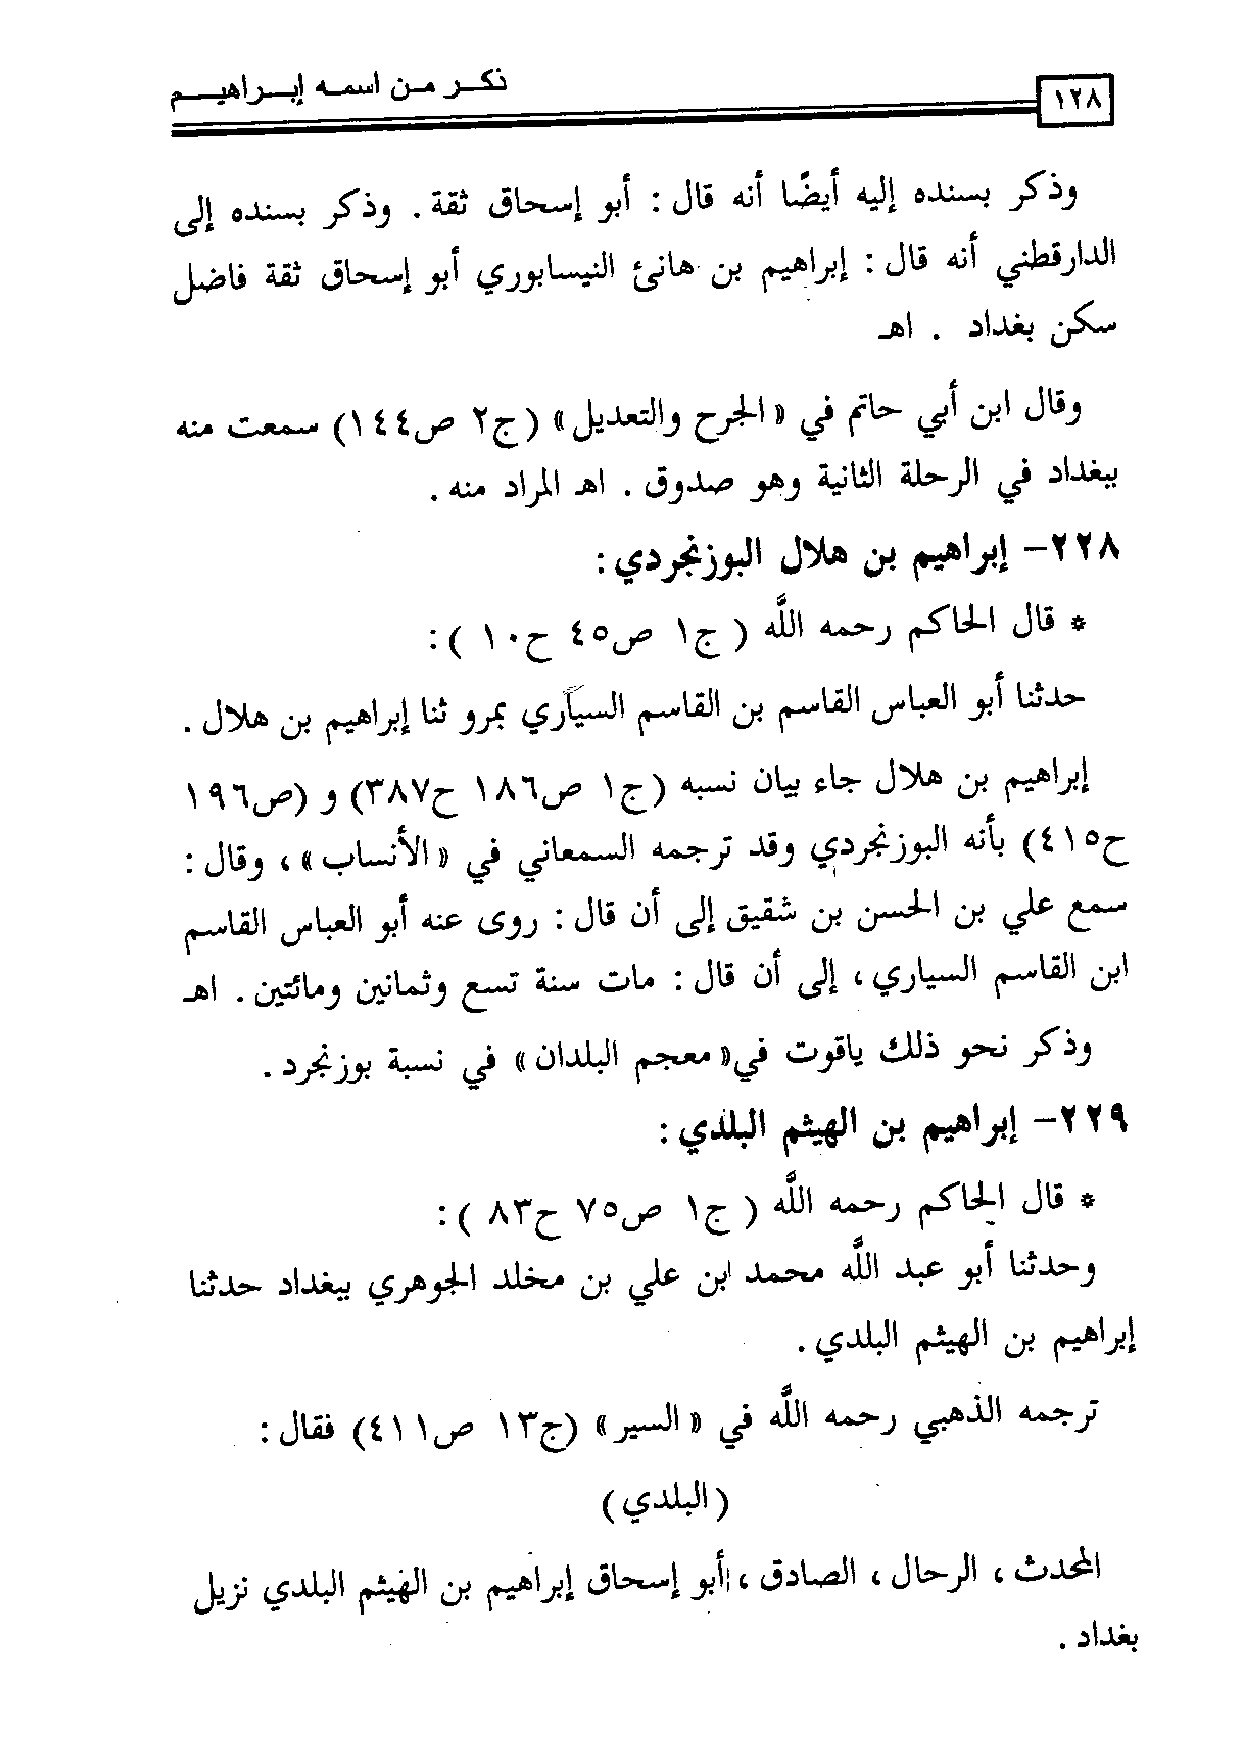 ١٢٨
ذكر من اسمه إبراهيم
وذكر بسنده إليه أيضًا أنه قال : أبو إسحاق ثقة . وذكر بسنده إلى
الدارقطني أنه قال : إبراهيم بن هانئ النيسابوري أبو إسحاق ثقة فاضل
سكن بغداد . اهـ
وقال ابن أبي حاتم في « الجرح والتعديل » (ج٢ ص١٤٤) سمعت منه
ببغداد في الرحلة الثانية وهو صدوق . اهـ المراد منه .
٢٢٨- إبراهيم بن هلال البوزنجردي :
* قال الحاكم رحمه اللَّه ( ج١ ص٤٥ ح١٠ ) :
حدثنا أبو العباس القاسم بن القاسم السيَّاري بمرو ثنا إبراهيم بن هلال .
إبراهيم بن هلال جاء بيان نسبه (ج١ ص١٨٦ ح٣٨٧) و (ص١٩٦
ح٤١٥) بأنه البوزنجردي وقد ترجمه السمعاني في « الأنساب » ، وقال :
سمع علي بن الحسن بن شقيق إلى أن قال : روى عنه أبو العباس القاسم
ابن القاسم السياري ، إلى أن قال : مات سنة تسع وثمانين ومائتين . اهـ
وذكر نحو ذلك ياقوت في« معجم البلدان » في نسبة بوزنجرد .
٢٢٩- إبراهيم بن الهيثم البلدي :
* قال الحاكم رحمه اللَّه ( ج١ ص٧٥ ح٨٣ ) :
وحدثنا أبو عبد اللَّه محمد ابن علي بن مخلد الجوهري ببغداد حدثنا
إبراهيم بن الهيثم البلدي .
ترجمه الذهبي رحمه اللَّه في « السير » (ج١٣ ص٤١١) فقال :
(البلدي)
المحدث ، الرحال ، الصادق ، أبو إسحاق إبراهيم بن الهيثم البلدي نزيل
بغداد .